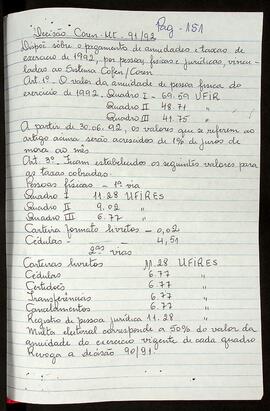 Decisão Coren-MT. 91/92
Pag-151
Dispõe sobre o pagamento de anuidades e taxas de
exercício de 1992, por pessoa físicas e jurídicas, vincu-
ladas ao Sistema Cofen/Coren
Art. 1º. O valor da anuidade de pessoa física do
exercício de 1992. Quadro I - 69.59 UFIR
Quadro II 48.71 "
Quadro III 41.75 "
A partir de 30.06.92, os valores que se referem ao
artigo acima serão acrescidos de 1% de juros de
mora ao mês
Art. 3º. Ficam estabelecidos os seguintes valores para
as taxas cobradas:
Pessoas físicas - 1ª via
Quadro I 11.28 UFIRES
Quadro II 9.02 "
Quadro III 6.77 "
Carteira formato livretos - 0,02
Cédulas - 4,51
2ªs vias
Carteiras livretos 11.28 UFIRES
Cédulas 6.77 "
Certidões 6.77 "
Transferências 6.77 "
Cancelamentos 6.77 "
Registro de pessoa jurídica 11.28 "
Multa eleitoral corresponde a 50% do valor da
anuidade do exercício vigente de cada quadro
Revoga a decisão 90/91.